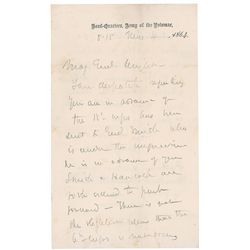 Head-Quarters, Army of the Potomac,
5-15 1864.
Brig Genl
Your despatch reporting
you are in advance of
the 18's Corps has been
sent to Genl Smith who
is under the impression
he is in advance of you
Smith & Hancock are
both ordered to push
forward — There is not
the slightest idea that the
6's Corps is